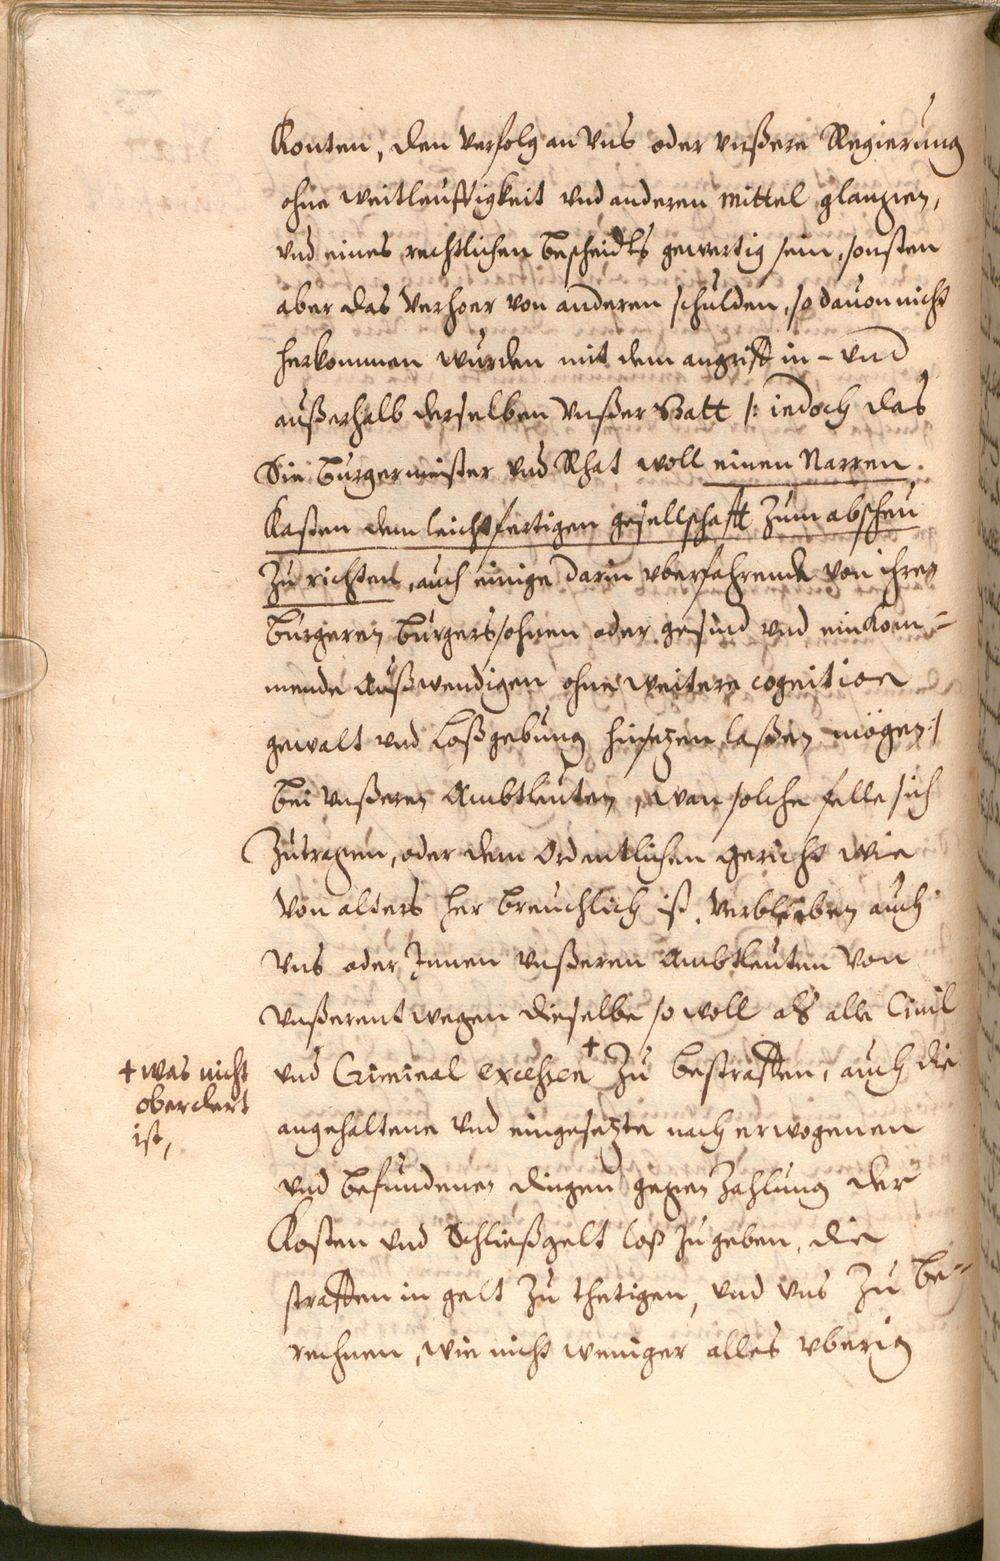 Konten, den verfolg an Uns oder unßere Regierung
ohne weitleufftigkeit und anderen mittel glangen,
und eines rechtlichen bescheidts gewertig sein, sonsten
aber das verhoer von anderen schulden, so dauon nicht
herkommen wurden mit dem angriff in- und
außerhalb derselben unßer Statt /: iedoch das
Die Burgermeister und Rhat woll einen Narren
Kasten dem leichtfertigen gesellschafft zum abscheu
Zu richten, auch einige darin uberfahrende von ihren
Burgeren, Burgerssohnen oder gesind und einkom=
mende Außwendigen ohne weitere cognition
gewalt und Loßgebung hinsezen laßen mögen :/
bei unßeren Ambtleuten, wan solche felle sich
Zutragen, oder dem Ordentlichen gericht wie
von alters her breuchlich ist, verbleiben auch
uns oder Innen unßeren Ambtleuten von
unßerentwegen dieselbe so woll als alle Ciuil
und Criminal excessen † Zu bestraffen, auch die
† was nicht
oberclert
ist,
angehaltene und eingesezte nach erwogenen
und befundenen dingen gegen Zahlung der
Kosten und Schließgelt loß zu geben, die
straffen in gelt Zu thetigen, und uns Zu be=
rechnen, wie nicht weniger alles uberig